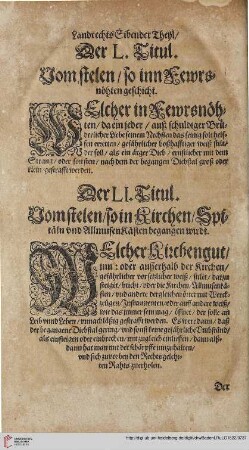 Landrechts Sibender Theyl/
Der L. Titul.
Vom stelen/ so inn Fewrs-
nöhten geschicht.
WElcher in Fewrsnöh-
ten/ da ein jeder/ auß schuldiger Brü-
derlicher Liebe seinem Nechsten das seinig solt helf-
fen erretten/ gefährlicher boßhafftiger weiß stilet/
der soll/ als ein ärger Dieb/ entweder mit dem
Strang/ oder sonsten/ nach dem der begangen Diebstal groß oder
klein/ gestrafft werden.
Der LI. Titul.
Vom stelen/ so in Kirchen/ Spi-
täln vnd Allmusen Kästen begangen würdt.
WElcher Kirchengut/
inn: oder ausserhalb der Kirchen/
gefährlicher weiß/ stilet/ darzu
steiget/ bricht/ oder die Kirchen, Allmusenkä-
sten/ vnd andere dergleichen örter mit
oder auff andere weiß/
wie das immer sein mag/ öffnet/ der solle an
Leib vnnd Leben/ vnnachläßig gestrafft werden. Es were dann/ daß
der begangene Diebstal gering/ vnd sonst keine gefährliche Vmbständ/
als einsteigen oder einbrechen/ mit zugleich einlieffen/ dann alß-
dann hat man mit der schärpffe innzuhalten/
vnd sich zuvor bey den Rechtsgelehr-
ten Rahts zuerholen.
Der